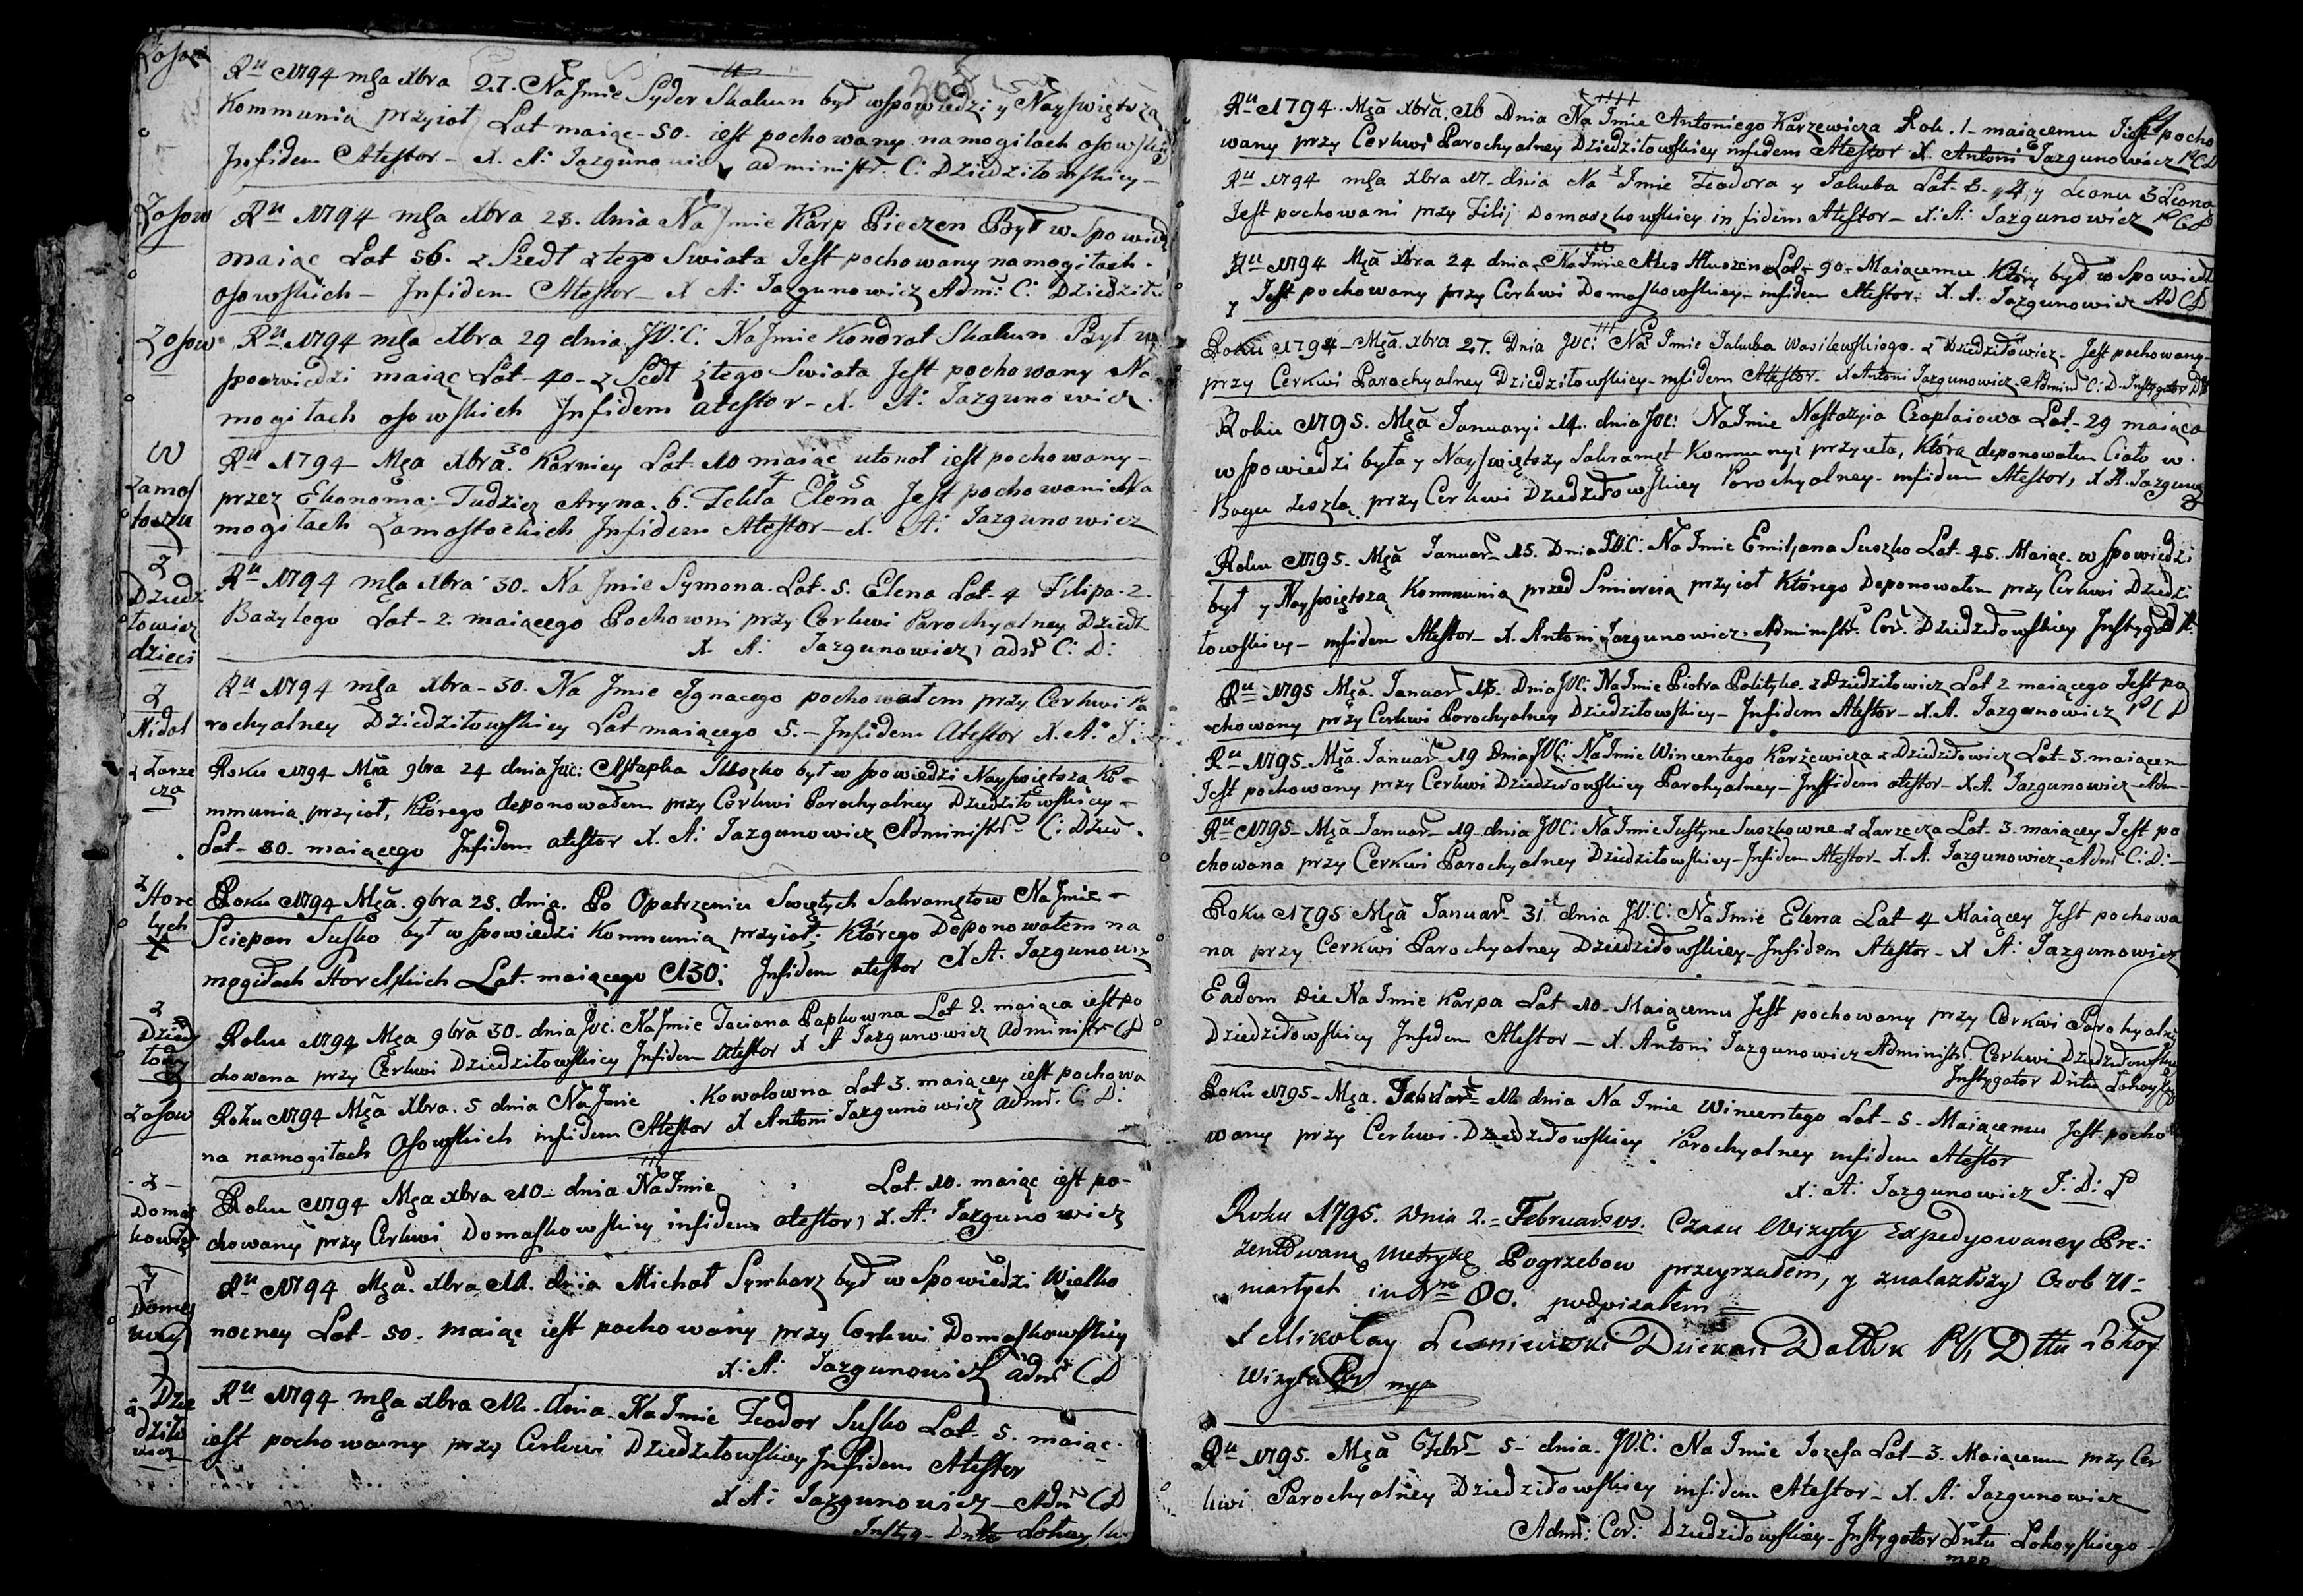 Zosow
Ru 1794 mṣa Xbra 27. Na Jmie Syder Skakun był wspowiedzi y Nayswiętszą
Kommunią przyioł Lat maiąc - 50. iest pochowany na mogiłach osowskich
Infidem Atestor - X. A: Jazgunowicz administr. C: Dziedziłowskiey -
Zosow
Ru 1794 mṣa Xbra 28. dnia Na Jmie Karp Pieczen Był w Spowiedzi
maiąc Lat 56. z Szedł ztego Swiata Jest pochowany na mogiłach -
osowskich - Infidem Atestor - X A: Jazgunowicz Adm: C: Dziedziło
Zosow
Ru 1794 mṣa Xbra 29 dnia JV:C: Na Jmie Kondrat Skakun Był w
spoowiedzi maiąc Lat - 40 - z Sedł ztego Swiata Jest pochowany Na
mogiłach osowskich Infidem atestor - X. A: Jazgunowicz
Zamos
tocza
Ru 1794 - Mṣa Xbra 30 Karniey Lat 10 maiąc utonoł iest pochowany -
przez Ekonoma - Tudziez Aryna. 6. Tekla Elena 5 Jest pochowani Na
mogiłach Zamostockich Infidem Atestor - X. A: Jazgunowicz
Z
Dziedz
iłowicz
dzieci
Ru 1794 mṣa Xbra 30. Na Jmie Symona. Lat. 5. Elena Lat 4 Filipa. 2.
Bazylego Lat - 2. maiącego Pochowni przy Cerkwi Parochyalney Dziedź
X. A: Jazgunowicz adm C: D:
Z
Nidal
Ru 1794 mṣa Xbra - 30. Na Jmie Ignacego pochowałem przy Cerkwi Pa
rochyalney Dziedziłowskiey Lat maiącego 5. - Infidem Atestor X. A: J:
z Zarze
cza
Roku 1794 Mṣa 9bra 24 dnia Jvc: Astapka Suszko był w spowiedzi Nayswiętszą Ko -
mmunią przyioł, Którego deponowałem przy Cerkwi Parochyalney Dziedziłowskiey -
Lat - 80. maiącego Infidem atestor X. A: Jazgunowicz Administr C: Dzied.
z
Hore
lych
Roku 1794 Mṣa. 9bra 28. dnia. Po Opatrzeniu Swiętych Sakramętow Na Jmie -
Sciepan Susko był w spowiedzi Kommunią przyioł; Którego Deponowałem na
mogiłach Horelskich Lat. maiącego 130: Infidem atestor X A: Jazgunowicz
z
Dziedz
Roku 1794 Mṣa 9bra 30 - dnia Jvc: Na Jmie Taciana Papkowna Lat 2. maiąca iest po
chowana przy Cerkwi Dziedziłowskiey Infidem Atestor X A Jazgunowicz Administr CD
Zosow
Roku 1794 Mṣa Xbra. 5 dnia Na Jmie . Kowalowna Lat 3. maiącey iest pochowa
na namogiłach Osowskich infidem Atestor X Antoni Jazgunowicz adm. C: D:
- z -
Domasz
kowicz
Roku 1794 Mṣa Xbra 10 - dnia Na Jmie Lat. 10. maiąc iest po -
chowany przy Cerkwi Domaskowskiey infidem atestor, X. A: Jazgunowicz
Ru 1794 Mṣa. Xbra 11. dnia Michał Symkarz był w Spowiedzi Wielko
nocney Lat - 50. maiąc iest pochowany przy Cerkwi Domaskowskiey
X. A: Jazgunowicz adm CD
Dzie
dziło
wicz
Ru 1794 mṣa Xbra 11. dnia. Na Jmie Teodor Susko Lat. 5. maiąc.
iest pochowany przy Cerkwi Dziedziłowskiey Infidem Atestor
X A: Jazgunowicz - Adm CD
Instyg - Dnttu
Ru 1794. Mṣa Xbra. 16 Dnia Na Jmie Antoniego Karzewicza Rok. 1 - maiącemu Jest pocho
wany przy Cerkwi Parochyalney Dziedziłowskiey infidem Atestor X. Antoni Jazgunowicz PCD
Ru 1794 mṣa Xbra 17 - dnia Na Jmie Teodora y Jakuba Lat Leona
Jest pochowani przy Filij Domaszkowskiey infidem Atestor - X: A: Jazgunowicz PCD
Ru 1794 Mṣa Xbra 24 dnia - Na Jmie Lat - 90 - Maiącemu Który był w Spowiedź
y Jest pochowany przy Cerkwi Domaskowskiey - infidem Atestor - X. A. Jazgunowicz Ad CD
Roku 1794 - Mṣa. Xbra 27. Dnia Jvc: Na Jmie Jakuba Wasilewskiego - z Dziedziłowicz - Jest pochowany -
przy Cerkwi Parochyalney Dziedziłowskiey - infidem Atestor - X Antoni Jazgunowicz - Admind C: D: Instygator
Roku 1795. Mṣa Januaryi 14. dnia JVC: Na Jmie Nastazyia Czaplaiowa Lat - 29 maiąca
w spowiedzi była y Nayswiętszy Sakramęt Kommunyi przyieła, Którą deponowałem Ciało w
Bogu zeszłą przy Cerkwi Dziedziłowskiey Parochyalney - infidem Atestor, X A. Jazgun
Roku 1795. Mṣa Januar 15. Dnia JV.C: Na Jmie Emiljana Suszko Lat - 45. Maiąc. w spowiedzi
był y Nayswiętszą Kommunią przed Smiercią przyioł Którego Deponowałem przy Cerkwi Dziedzi
łowskiey - infidem Atestor - X. Antoni Jazgunowicz, Administr. Cer. Dziedziłowskiey Instyg
Ru 1795 Mṣa. Januar 18. Dnia JVC: Na Jmie Piotra Polityko - z Dziedziłowicz Lat 2 maiącego Jest po
chowany przy Cerkwi Parochyalney Dziedziłowskiey - Infidem Atestor - X. A. Jazgunowicz PCD
Ru 1795 - Mṣa. Januar - 19 Dnia JVC: Na Jmie Wincentego Karżewicza z Dziedziłowicz Lat - 3. maiącem
Jest pochowany przy Cerkwi Dziedziłowskiey Parohyalney - Infidem atestor - X A. Jazgunowicz - Adm -
Ru 1795 - Mṣa Januar - 19 - dnia JVC: Na Jmie Justyne Suszkowne z Zarzecza Lat - 3. maiącey Jest po
chowana przy Cerkwi Parochyalney Dziedziłowskiey - Infidem Atestor - X. A. Jazgunowicz Adm C: D: -
Roku 1795 Mṣa Januar - 31 dnia JV:C: Na Jmie Elena Lat 4 Maiącey Jest pochowa
na przy Cerkwi Parochyalney Dziedziłowskiey - Infidem Atestor - X A: Jazgunowicz
Eadem Die Na Jmie Karpa Lat 10 - Maiącemu Jest pochowany przy Cerkwi Parohyalney
Dziedziłowskiey Infidem Atestor - X. Antoni Jazgunowicz Administr. Cerkwi Dziedziłowskiey
Instygator Dnttu
Roku 1795 - Mṣa. 11 dnia Na Jmie Wincentego Lat - 5 - Maiącemu Jest pocho
wany przy Cerkwi - Dziedziłowskiey Parochyalney infidem Atestor
X: A: Jazgunowicz
Roku 1795. Dnia 2. = Februar. vs. Czasu Wizyty Expedyowaney Pre:
zentowaną Metrykę Pogrzebow przeyrzałem, y znalazłszy Osob u =
marłych in Nro 80. podpisałem =
X Mikołay Lesniewski Dziekan Dttu Lohoy
Wizytator mpp
Ru 1795. Mṣa Febr - 5 - dnia - JV.C: Na Jmie Jozefa Lat - 3. Maiącemu przy Cer
kwi Parochyalney Dziedziłowskiey infidem Atestor - X. A: Jazgunowicz
Adm: Cer: Dziedziłowskiey - Instygator Dnttu Lohoyskiego -
mpp